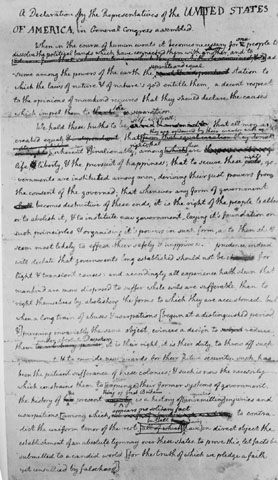 A Declaration by the Representatives of the UNITED STATES
OF AMERICA, in General Congress assembled.
When in the course of human events it becomes necessary for one people to
dissolve the political bands which have connected them with another, and to
assume among the powers of the earth the separate and equal station to
which the laws of nature & of nature's god entitle them, a decent respect
to the opinions of mankind requires that they should declare the causes
which impel them to the separation.
We hold these truths to be self-evident; that all men are
created equal
inherent & inalienable among
life, liberty, & the pursuit of happiness; that to secure these rights, go
vernments are instituted among men, deriving their just powers from
the consent of the governed; that whenever any form of government
becomes destructive of these ends, it is the right of the people to alter
or to abolish it, & to institute new government, laying it's foundation on
such principles & organising it's powers in such form, as to them shall
seem most likely to effect their safety & happiness. prudence indeed
will dictate that governments long established should not be changed for
light & transient causes: and accordingly all experience hath shewn that
mankind are more disposed to suffer while evils are sufferable, than to
right themselves by abolishing the forms to which they are accustomed. but
when a long train of abuses & usurpations [begun at a distinguished period
& pursuing invariably the same object, evinces a design to reduce
them under absolute Despotism it is their right, it is their duty, to throw off such
government & to provide new guards for their future security. such has
been the patient sufferance of these colonies; & such is now the necessity
which constrains them to [expunge] their former systems of government.
the history of the present King of Great Britain is a history of [unremitting] injuries and
usurpations, [among which appears no solitary fact to contra-
dict the uniform tenor of the rest in direct object the
establishment of an absolute tyranny over these states. to prove this, let facts be
submitted to a candid world [for the truth of which we pledge a faith
yet unsullied by falsehood]